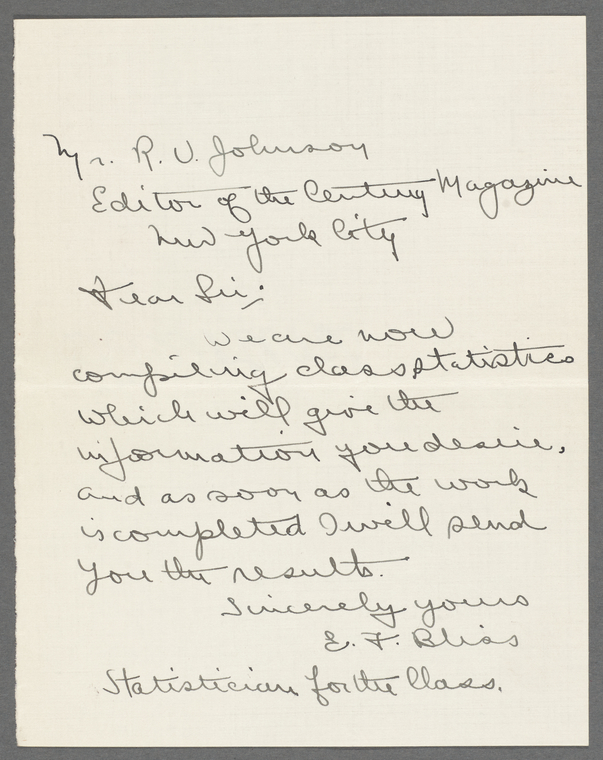 Mr. R. U. Johnson
Editor of the Century Magazine
New York City
Dear Sir:
We are now
compiling class statistics
which will give the
information you desire,
and as soon as the work
is completed I will send
you the results.
Sincerely yours
E. F. Bliss
Statistician for the Class.